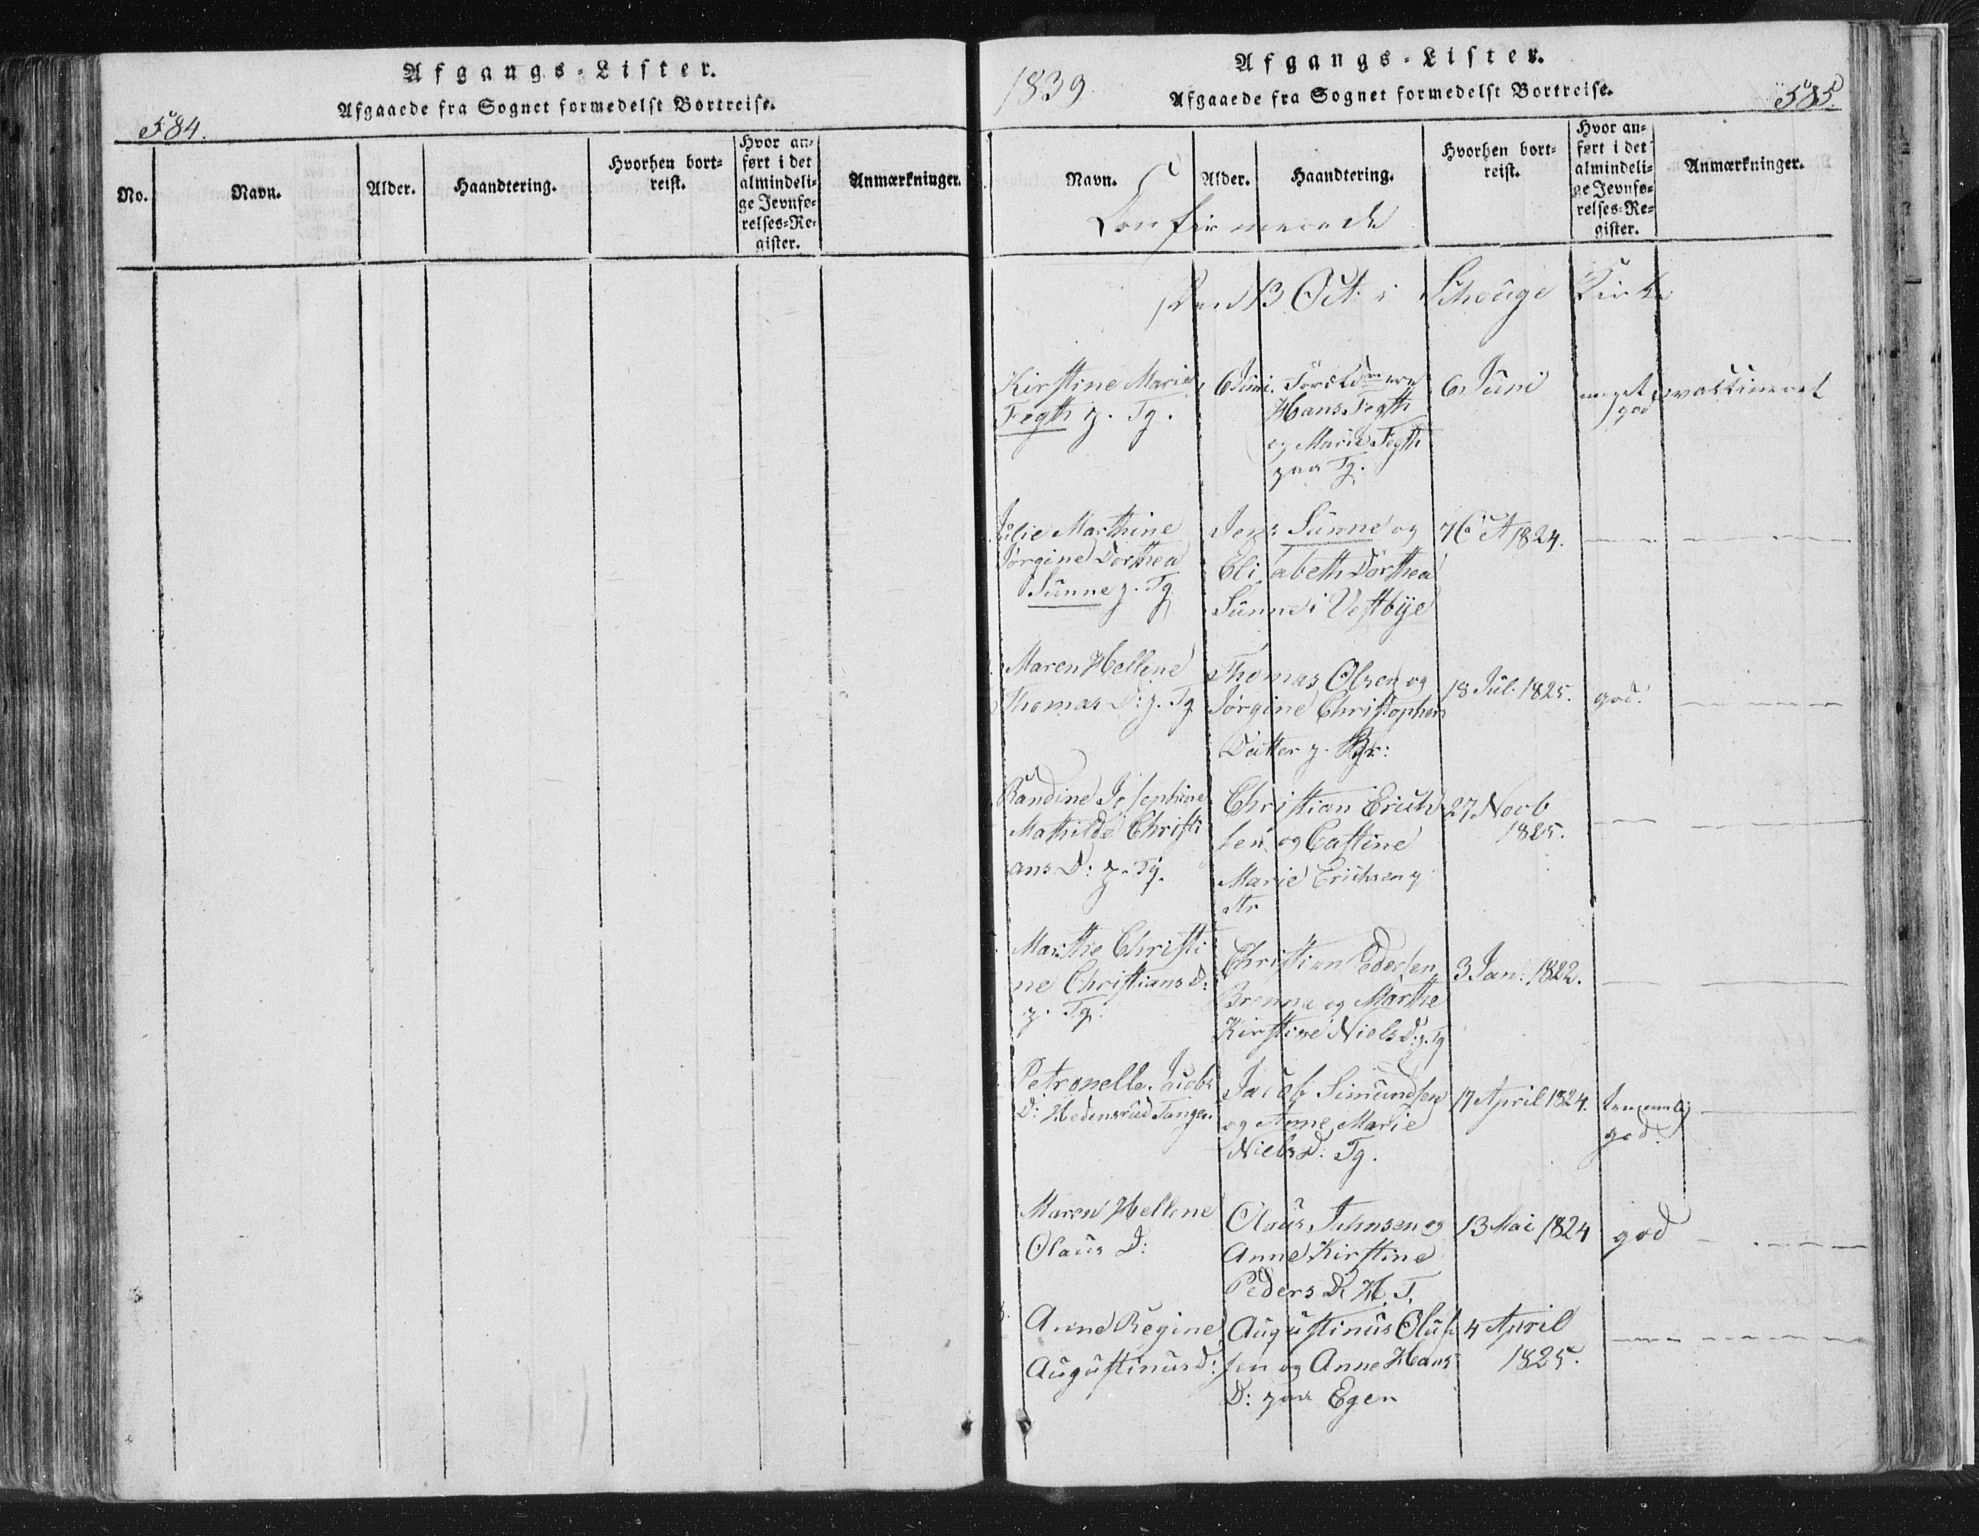 Afgangs-Lister.
Afgaaede fra Sognet formedelst Bortreise.
584.
No.
Navn.
Alder.
Haandtering.
Hvorhen bort-
reist.
Hvor an-
ført i det
almindeli-
ge Jevnfø-
relses-Re-
gister.
Anmærkninger.
1839
Afgangs-Lister.
Afgaaede fra Sognet formedelst Bortreise.
585.
Navn.
Alder.
Haandtering.
Hvorhen bort-
reist.
Hvor an-
ført i det
almindeli-
ge Jevnfø-
relses-Re-
gister.
Anmærkninger.
Confirmerede
den 13 Oct. i Schouge Kirke
Kirstine Marie
Fegth p. Tg.
6 Juni. Forældrene
Hans Fegth
og Marie Fegth
paa Tg.
6 Juni
meget
god
vaksineret
Julie Marthine
Jørgine Dorthea
Sünne p. Tg
Jens Sünne og
Elisabeth Dorthea
Sünne i Vestbye
7 Oct 1824.
Maren Hellene
Thomas D: p. Tg
Thomas Olsen og
Jørgine Christophers
Datter p.
18 Jul. 1825.
god.
Randine Josephine
Mathilde Christi
ans D: p. Tg.
Christian Erich
sen og Castine
Marie Erichsen p
Str
27 Novb
1825.
Marthe Christi
ne Christians D:
p. Tg.
Christian Pedersen
Brenna og Marthe
Kirstine Niels D: p. Tg
3 Jan. 1822.
Petronelle Jacobs
D: Hedensrud Tangen.
Jacob Simundsen
og Anne Marie
Niels D: Tg.
17 April 1824.
temmelig
god.
Maren Hellene
Olaus D:
Olaus Johnsen og
Anne Kirstine
Peders D. H. T.
13 Mai 1824
god
Anne Regine
Augustinus D:
Augustinus Oluf
sen og Anne Hans
D: paa Egen
4 April
1825.